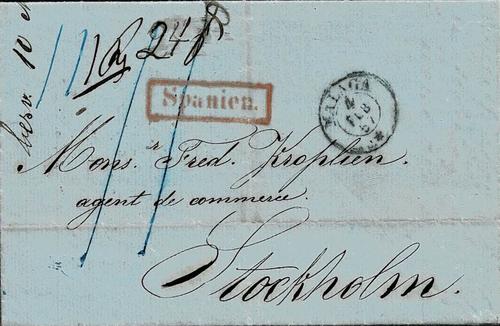 besv. 10
24
Spanien.
MALAGA
FEB
57
Mons.r Fred. Kroplien.
agent de commerce.
Stockholm.